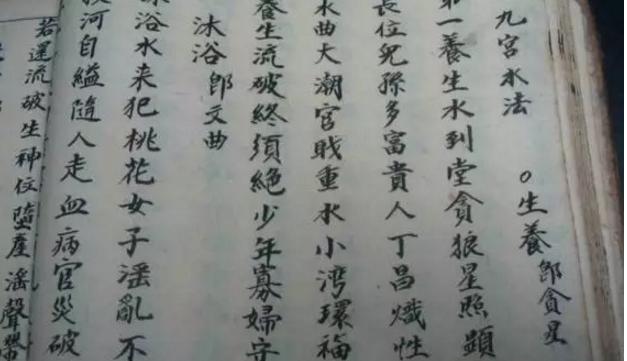 九宮水法 ○生養郎貪星
第一養生水到堂貪狼星照顯
長位兒孫多富貴人丁昌熾性
水曲大潮官戝重水小湾環福
養生流破終須絶少年寡婦守
沐浴郎文曲
浴水来犯桃花女子滛亂不
河自縊隨人走血病官災破
若還流破生神位墮產滛聲